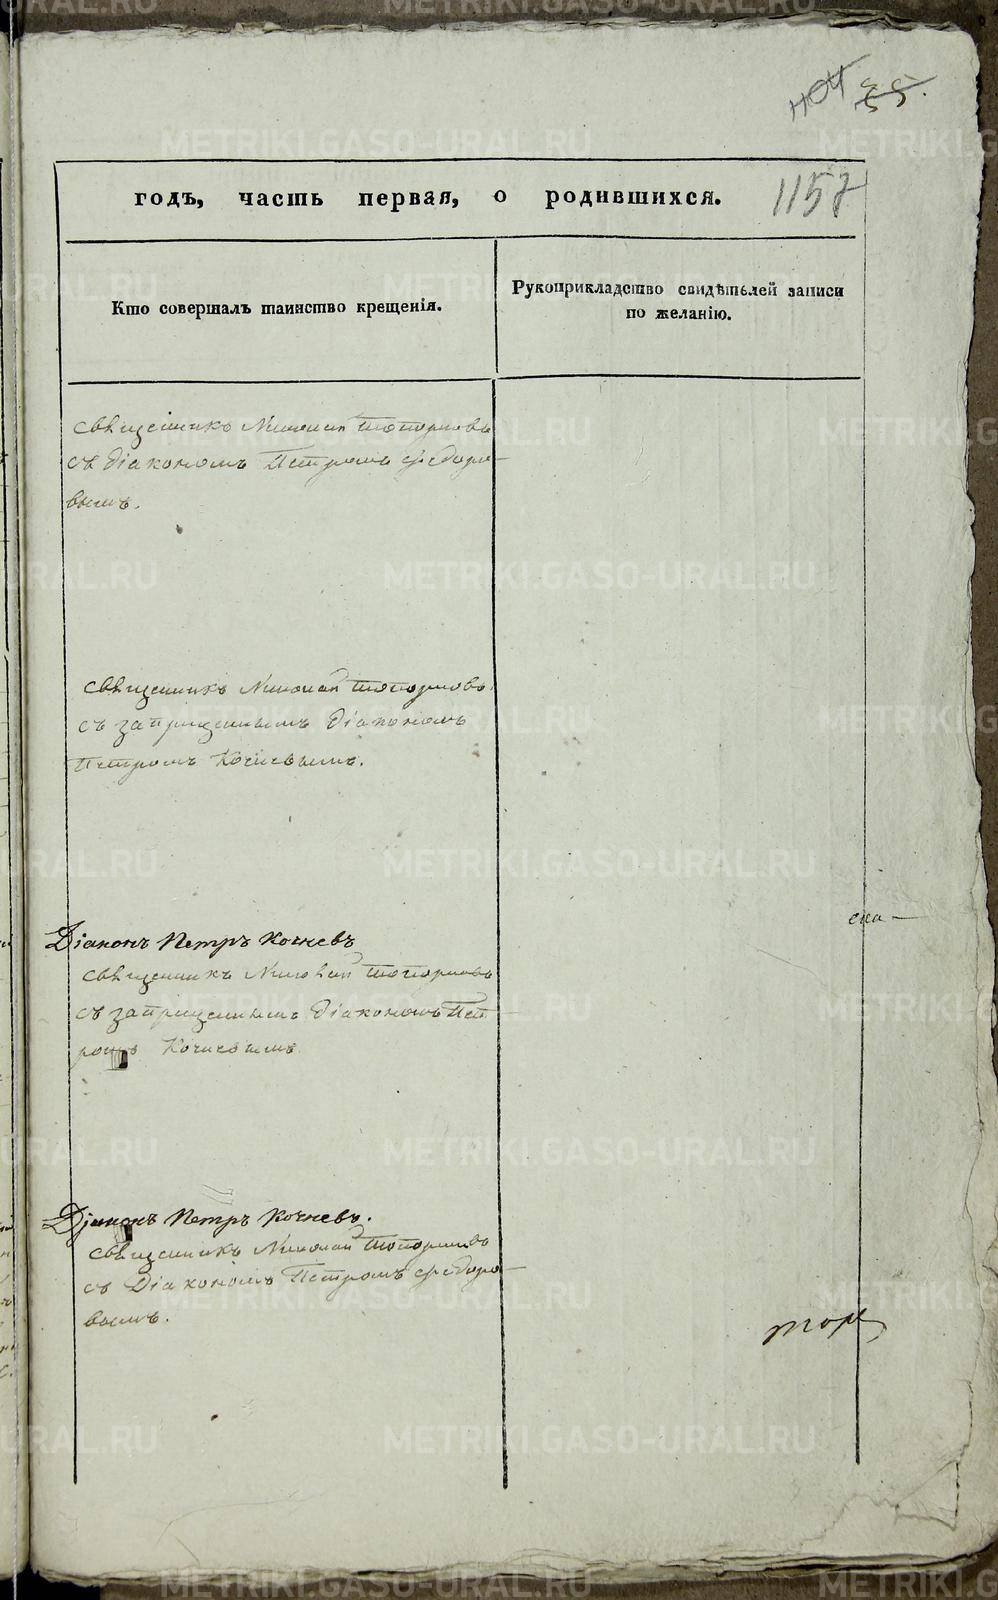 404 35.
1157
годъ, часть первая, о родившихся.
Кто совершалъ таинство крещенія.
Рукоприкладство свидѣтелей записи
по желанію.
Священникъ Николай Топорковъ
съ діакономъ Петромъ Ѳедоро-
вымъ.
Священникъ Николай Топорковъ
съ запрещеннымъ діакономъ
Петромъ Кочневымъ.
ска-
Діаконъ Петръ Кочневъ
Священникъ Николай Топорковъ
съ запрещеннымъ діакономъ Пет-
ромъ Кочневымъ
Діаконъ Петръ Кочневъ.
Священникъ Николай Топорковъ
съ Діакономъ Петромъ Ѳедоро-
вымъ.
METRIKI.GASO-URAL.RU